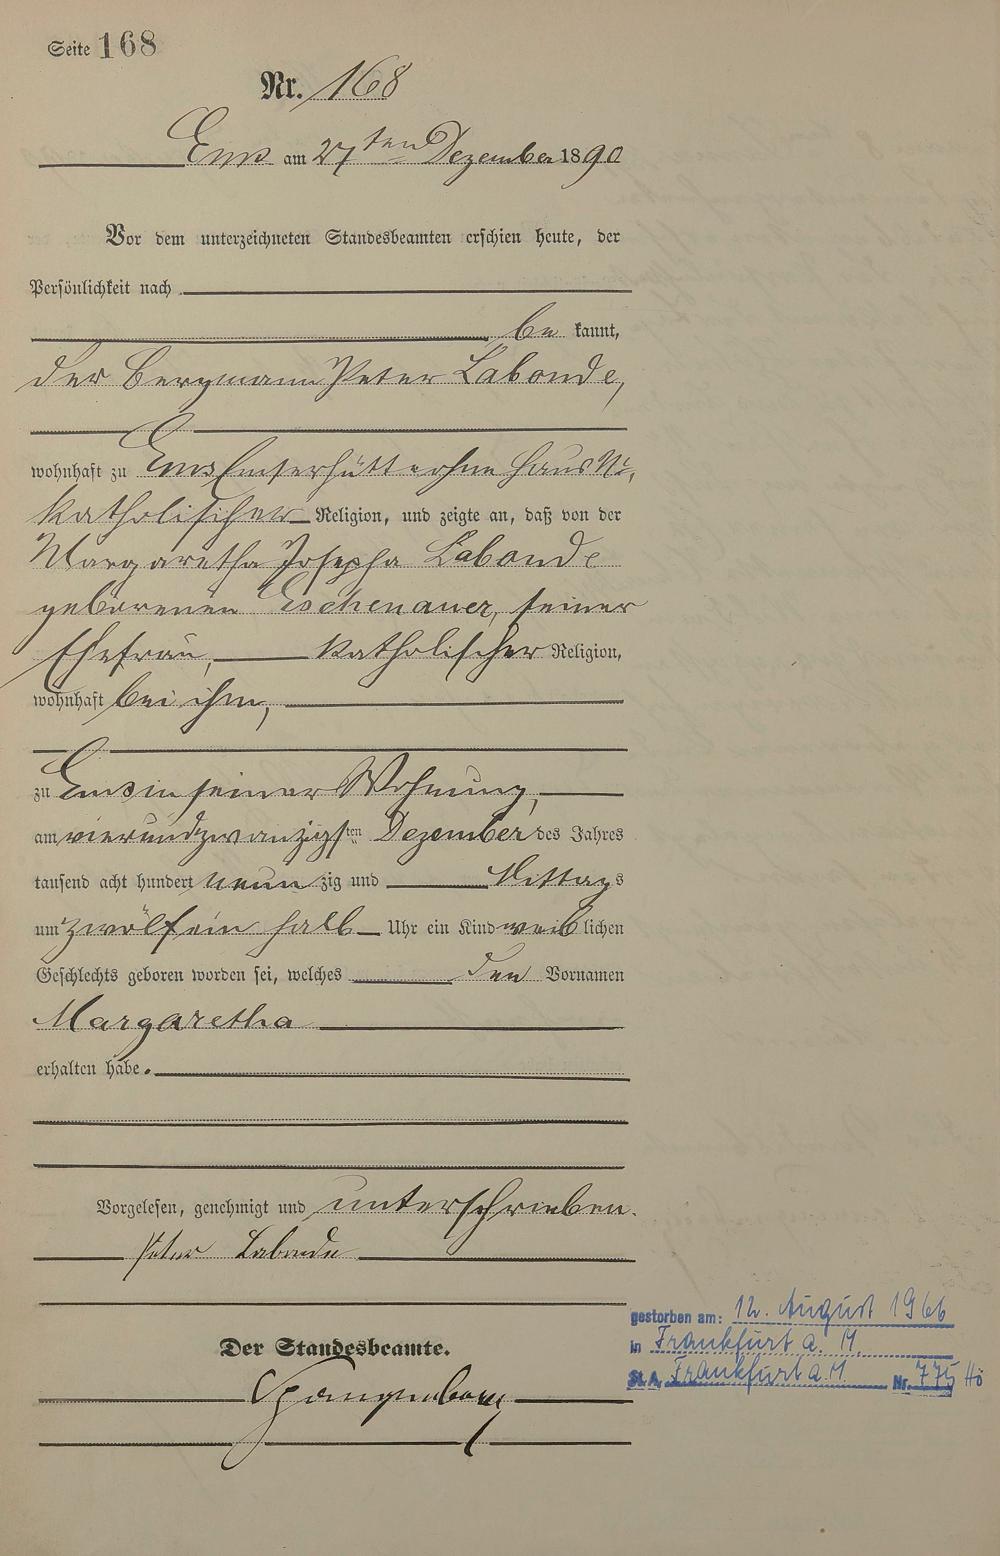 Seite 168
Nr. 168
Ems am 27ten Dezember 1890
Vor dem unterzeichneten Standesbeamten erschien heute, der
Persönlichkeit nach
be kannt,
der Bergmann Peter Labonde,
wohnhaft zu Ems Emserhütte ohne Haus Nr.,
katholischer Religion, und zeigte an, daß von der
Margaretha Josepha Labonde
geborenen Eschenauer, seiner
Ehefrau, katholischer Religion,
wohnhaft bei ihm,
zu Ems in seiner Wohnung,
am vierundzwanzigsten Dezember des Jahres
tausend acht hundert neun zig und Mittags
um zwölf ein halb Uhr ein Kind weib lichen
Geschlechts geboren worden sei, welches den Vornamen
Margaretha
erhalten habe.
Vorgelesen, genehmigt und unterschrieben.
Peter Labonde
Der Standesbeamte.
Spangenberg
gestorben am: 12. August 1966
in Frankfurt a. M.
St.A. Frankfurt a M Nr. 775 Hö